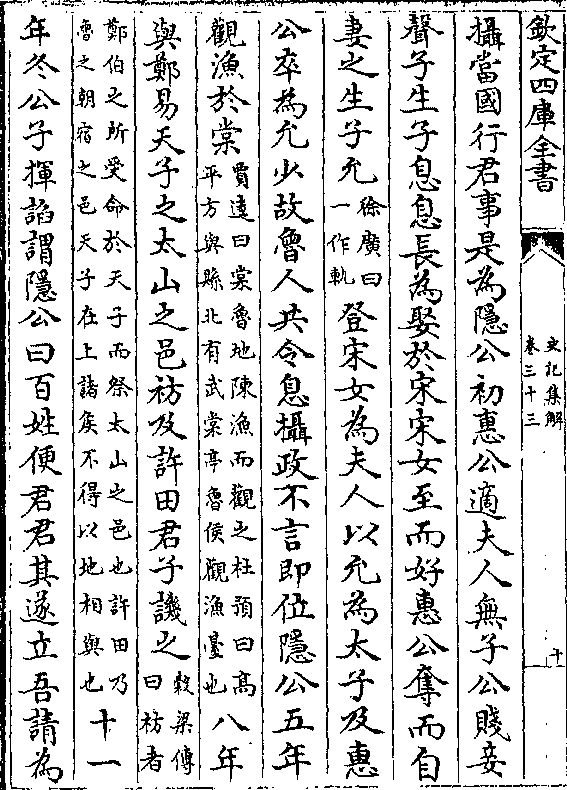 欽定四庫全書
史記集解
卷三十三
十
攝當國行君事是為隱公初惠公適夫人無子公賤妾
聲子生子息息長為娶於宋宋女至而好惠公奪而自
妻之生子允徐廣曰一作軌登宋女為夫人以允為太子及惠
公卒為允少故魯人共令息攝政不言即位隱公五年
觀漁於棠賈逵曰棠魯地陳漁而觀之杜預曰高平方與縣北有武棠亭魯侯觀漁臺也八年
與鄭易天子之太山之邑祊及許田君子譏之穀梁傳曰祊者
鄭伯之所受命於天子而祭太山之邑也許田乃魯之朝宿之邑天子在上諸侯不得以地相與也十一
年冬公子揮諂謂隱公曰百姓便君君其遂立吾請為